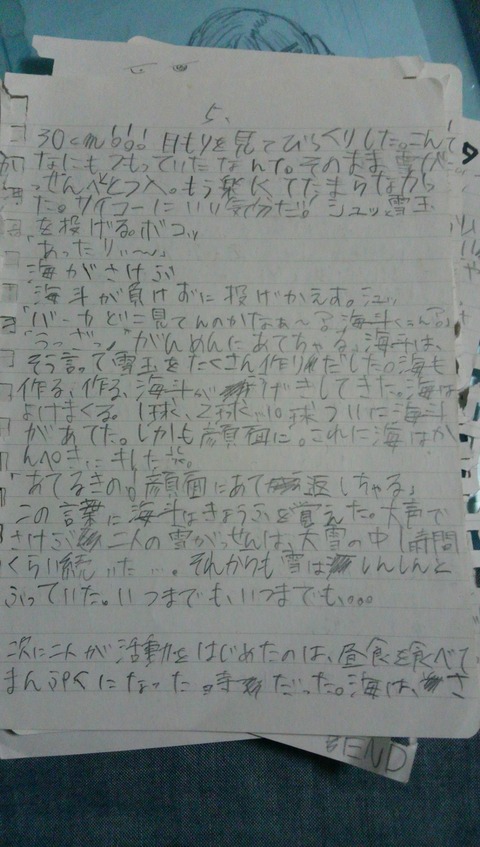 5、
30cm!!! 目もりを見てびっくりした。こんな
なにもつもっていたなんて。そのまま雪が
っせんへとつ入。もう楽しくてたまらなかっ
た。サイコーにいい気分だ! シュッ、雪玉
を投げる。ボコッ
「あったりぃ〜」
海がさけぶ
海斗が負けずに投げかえす。シュッ
「バーカどこ見てんのかなぁ〜?海斗くーん?」
「うっざ」がんめんにあてちゃる」海斗は、
そう言って雪玉をたくさん作りだした。海も
作る、作る、海斗が げきしてきた。海は
よけまくる。1球、2球…10球ついに海斗
があてた。しかも顔面に。これに海はか
んぺきにキレた。
「あてるきの。顔面にあて返しちゃる」
この言葉に海斗はきょうふを覚えた。大声で
さけぶ 二人の雪がっせんは、大雪の中1時間
くらい続いた…。それからも雪はしんしんと
ふっていた。いつまでも、いつまでも。。。
次に二人が活動をはじめたのは、昼食を食べて
まんぷくになった時だった。海は、さ
END